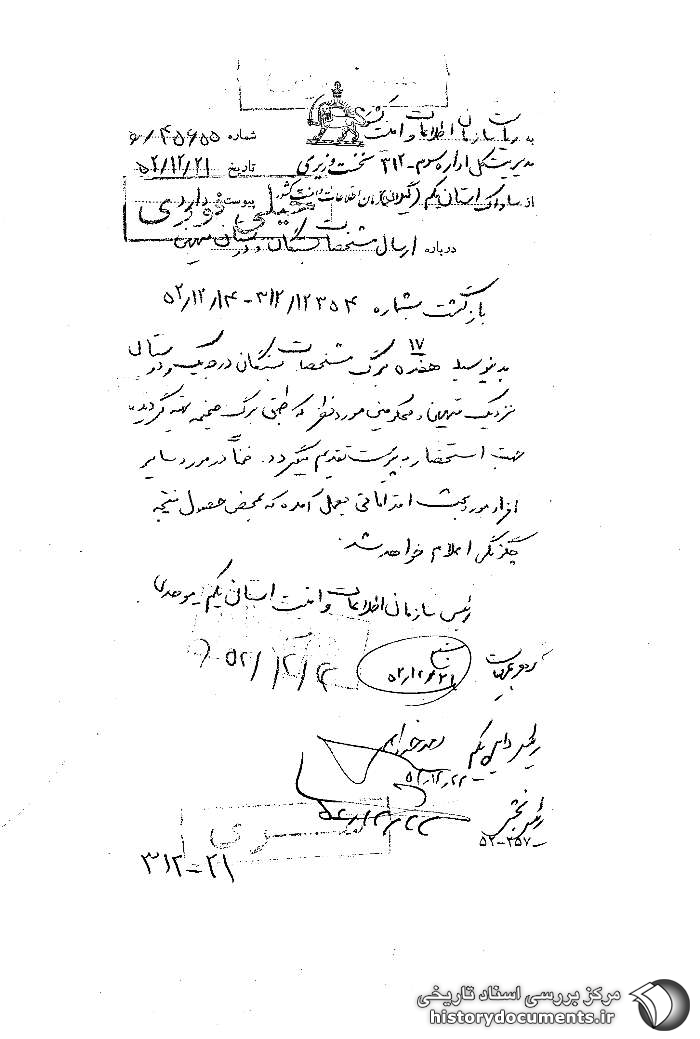 به ریاست سازمان اطلاعات و امنیت کشور
شماره ۴۵۶۵۵/ه
مدیریت کل اداره سوم - ۳۱۲ نخست وزیری
تاریخ ۵۲/۱۲/۲۱
از ساواک استان یکم (گیلان) سازمان اطلاعات و امنیت کشور
پیوست دارد
خیلی فوری
درباره ارسال مشخصات بستگان و دوستان متهمین
بازگشت بشماره ۳۱۲/۱۲۳۵۴ - ۵۲/۱۲/۱۴
۱۷
بدینوسیله هفده برگ مشخصات بستگان درجه یک و دوستان
نزدیک متهمین و محکومین مورد نظر که طبق برگ ضمیمه تهیه گردیده
جهت استحضار به پیوست تقدیم میگردد. ضمناً در مورد سایر
افراد مورد بحث اقداماتی بعمل آمده که بمحض حصول نتیجه
چگونگی اعلام خواهد شد.
رئیس سازمان اطلاعات و امنیت استان یکم
۵۲/۱۲/۲
۵۲/۱۲/۲۱
رهبر عملیات
۵۲/۱۲/۲۲
رئیس بخش
۵۲/۱۲/۲۲
۳۱۲-۲۱
مرکز بررسی اسناد تاریخی
historydocuments.ir